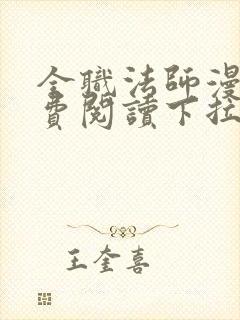 全職法師漫
費閱讀下拉
王奎喜